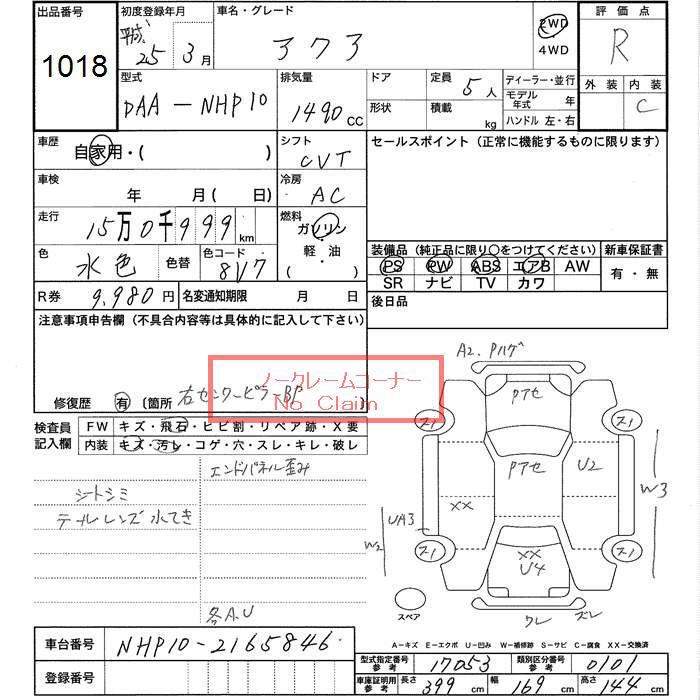 出品番号 初度登録年月 車名・グレード 評価点
1018 平成 25年 3月 アクア 2WD R
4WD
型式 排気量 ドア 定員 5人 ディーラー・並行 外装 内装
DAA-NHP10 1490cc 形状 積載 kg モデル年式 年 C
ハンドル 左・右
車歴 自家用・( ) シフト CVT セールスポイント (正常に機能するものに限ります)
車検 年 月( 日) 冷房 AC
走行 15万0千999km 燃料 ガソリン
色 水色 色替 色コード 8V7 軽・油
( ・ )
装備品 (純正品に限り○をつけてください) 新車保証書
PS PW ABS エアB AW 有・無
SR ナビ TV カワ
R券 9,980円 名変通知期限 月 日 後日品
注意事項申告欄 (不具合内容等は具体的に記入して下さい)
ノークレームコーナー
No Claim
修復歴 有 〔箇所 右センターピラーBP 〕
検査員記入欄 FW キズ・飛石・ヒビ割・リペア跡・X要
内装 キズ・汚レ・コゲ・穴・スレ・キレ・破レ
エンドパネル歪み
シートシミ
テールレンズ水てき
各A.U
A2. Pハゲ
Pアセ
Pアセ
U2
XX
UA3
W2
W3
XX
U4
スペア
ワレ ズレ
A-キズ E-エクボ U-凹み W-補修跡 S-サビ C-腐食 XX-交換済
車台番号 NHP10-2165846
型式指定番号 参考 17053 類別区分番号 参考 0101
登録番号 車庫証明用 参考 長さ 399cm 幅 169cm 高さ 144cm